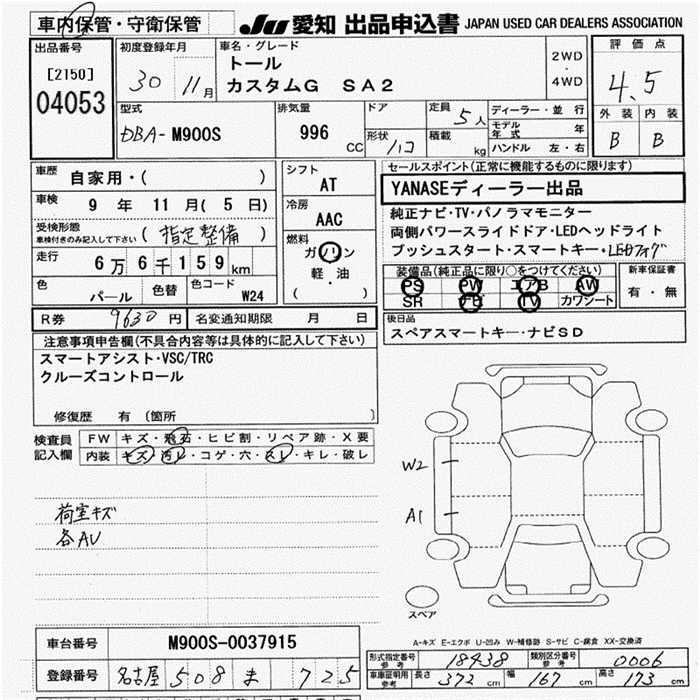 車内保管・守衛保管 JU 愛知 出品申込書 JAPAN USED CAR DEALERS ASSOCIATION
出品番号 [2150] 04053
初度登録年月 30 11月
車名・グレード トール
カスタムG SA2
2WD・4WD
評価点 4.5
外装 内装
B B
型式 DBA-M900S
排気量 996 CC
ドア 形状 ハコ
定員 5人
積載 kg
ディーラー・並行
モデル年式 年
ハンドル 左・右
車歴 自家用・( )
車検 9年 11月(5日)
受検形態 車検付きのみ記入して下さい (指定整備)
走行 6万6千159km
色 パール 色替 色コード W24
シフト AT
冷房 AAC
燃料 ガソリン
軽・油
( )
セールスポイント(正常に機能するものに限ります)
YANASEディーラー出品
純正ナビ・TV・パノラマモニター
両側パワースライドドア・LEDヘッドライト
プッシュスタート・スマートキー・LEDフォグ
装備品(純正品に限り○をつけてください)
PS PW エアB AW
SR ナビ TV カワシート
新車保証書
有・無
R券 9630円 名変通知期限 月 日
後日品
スペアスマートキー・ナビSD
注意事項申告欄(不具合内容等は具体的に記入して下さい)
スマートアシスト・VSC/TRC
クルーズコントロール
修復歴 有 〔箇所 〕
検査員記入欄
FW キズ・飛石・ヒビ割・リペア跡・X要
内装 キズ・汚レ・コゲ・穴・スレ・キレ・破レ
荷室キズ
各AU
W2
A1
スペア
A-キズ E-エクボ U-凹み W-補修跡 S-サビ C-腐食 XX-交換済
車台番号 M900S-0037915
登録番号 名古屋 508 ま 725
形式指定番号 参考 18438 類別区分番号 参考 0006
車庫証明用 参考 長さ 372cm 幅 167cm 高さ 173cm